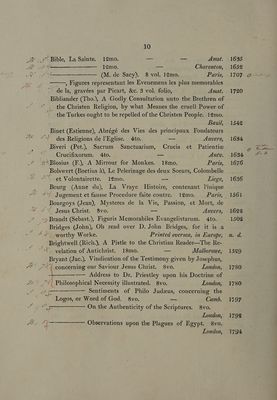 10
Bible, La Sainte. 12mo. — Amst. 1635
——— 12mo. — Charenton, 1652
——— (M. de Sacy). 8 vol. 12mo. Paris, 1707
———, Figures representant les Evenemens les plus memorables
de la, gravées par Picart, &c. 3 vol. folio, Amst. 1720
Bibliander (Tho.), A Godly Consultation unto the Brethren of
the Christen Religion, by what Meanes the cruell Power of
the Turkes ought to be repelled of the Christen People. 12mo.
Basil, 1542
Binet (Estienne), Abrégé des Vies des principaux Fondateurs
des Religions de l'Eglise. 4to. — Anvers, 1634
Biveri (Pet.), Sacrum Sanctuarium, Crucis et Patientiæ
Crucifixorum. 4to. — Antv. 1634
Blosius (F.), A Mirrour for Monkes. 18mo. Paris, 1676
Bolsvert (Boetius à), Le Pelerinage des deux Sœurs, Colombelle
et Volontairette. 12mo. Liege, 1636
Bourg (Anne du), La Vraye Histoire, contenant l'inique
Jugement et fausse Procedure faite contre. 12mo. Paris, 1561
Bourgoys (Jean), Mysteres de la Vie, Passion, et Mort, de
Jesus Christ. 8vo. Anvers, 1622
Brandt (Sebast.), Figuris Memorabiles Evangelistarum. 4to. 1502
Bridges (John), Oh read over D. John Bridges, for it is a
worthy Worke. Printed oversea, in Europe, n. d.
Brightwell (Rich.), A Pistle to the Christian Reader—The Re-
velation of Antichrist. 18mo. — Malborowe, 1529
Bryant (Jac.), Vindication of the Testimony given by Josephus,
concerning our Saviour Jesus Christ. 8vo. London, 1780
——— Address to Dr. Priestley upon his Doctrine of
Philosophical Necessity illustrated. 8vo. London, 1780
——— Sentiments of Philo Judæus, concerning the
Logos, or Word of God. 8vo. — Camb. 1797
——— On the Authenticity of the Scriptures. 8vo.
London, 1792
——— Observations upon the Plagues of Egypt. 8vo.
London, 1794